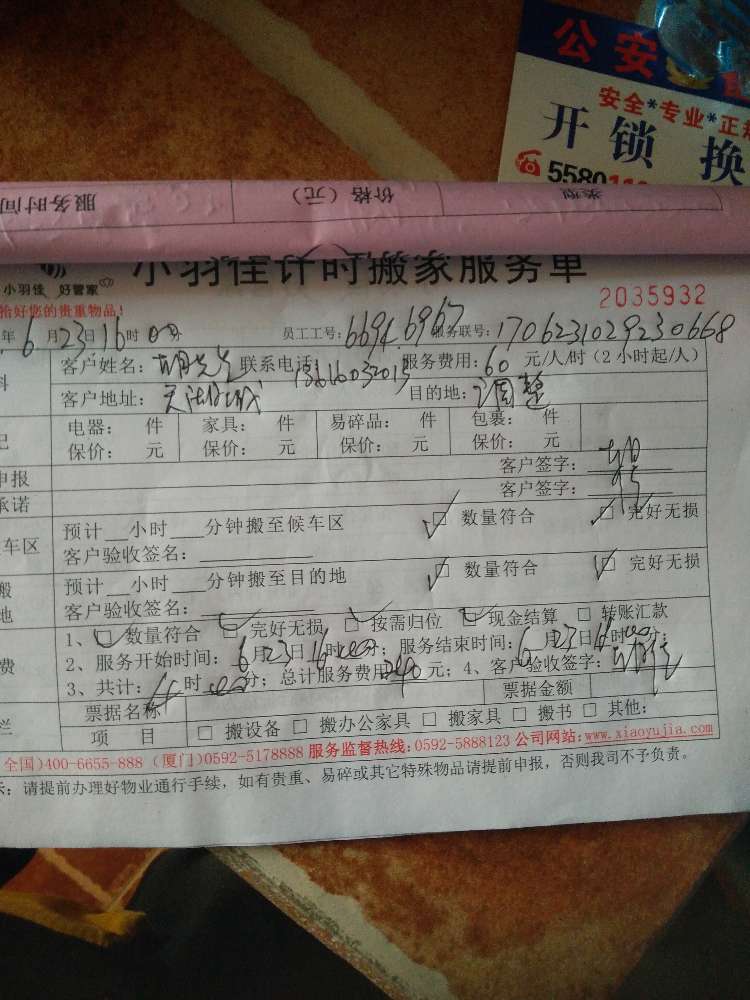 公安
安全*专业*正
开锁 换
5580
服务时间 价格（元） 类型
小羽佳 好管家 小羽佳计时搬家服务单
恰好您的贵重物品！ 2035932
年6月23日16时00分 员工工号：6694 6967 服务联号：1706231029230668
客户姓名：胡先生 联系电话： 服务费用：60 元/人/时（2小时起/人）
客户地址：天湖城 目的地：调整
电器： 件 家具： 件 易碎品： 件 包裹： 件
保价： 元 保价： 元 保价： 元 保价： 元
申报 客户签字：
承诺 客户签字：
车区 预计__小时___分钟搬至候车区 ☑ 数量符合 ☑ 完好无损
客户验收签名：
搬 预计__小时___分钟搬至目的地 ☑ 数量符合 ☑ 完好无损
地 客户验收签名：
1、☑ 数量符合 ☑ 完好无损 ☑ 按需归位 ☑ 现金结算 □ 转账汇款
费 2、服务开始时间：6月23日16时00分；服务结束时间：6月23日 时 分；
3、共计： 时 分；总计服务费用 元；4、客户验收签字：
票据名称 票据金额
栏 项 目 □ 搬设备 □ 搬办公家具 □ 搬家具 □ 搬书 □ 其他：
全国)400-6655-888 (厦门)0592-5178888 服务监督热线：0592-5888123 公司网站：www.xiaoyujia.com
示：请提前办理好物业通行手续，如有贵重、易碎或其它特殊物品请提前申报，否则我司不予负责。